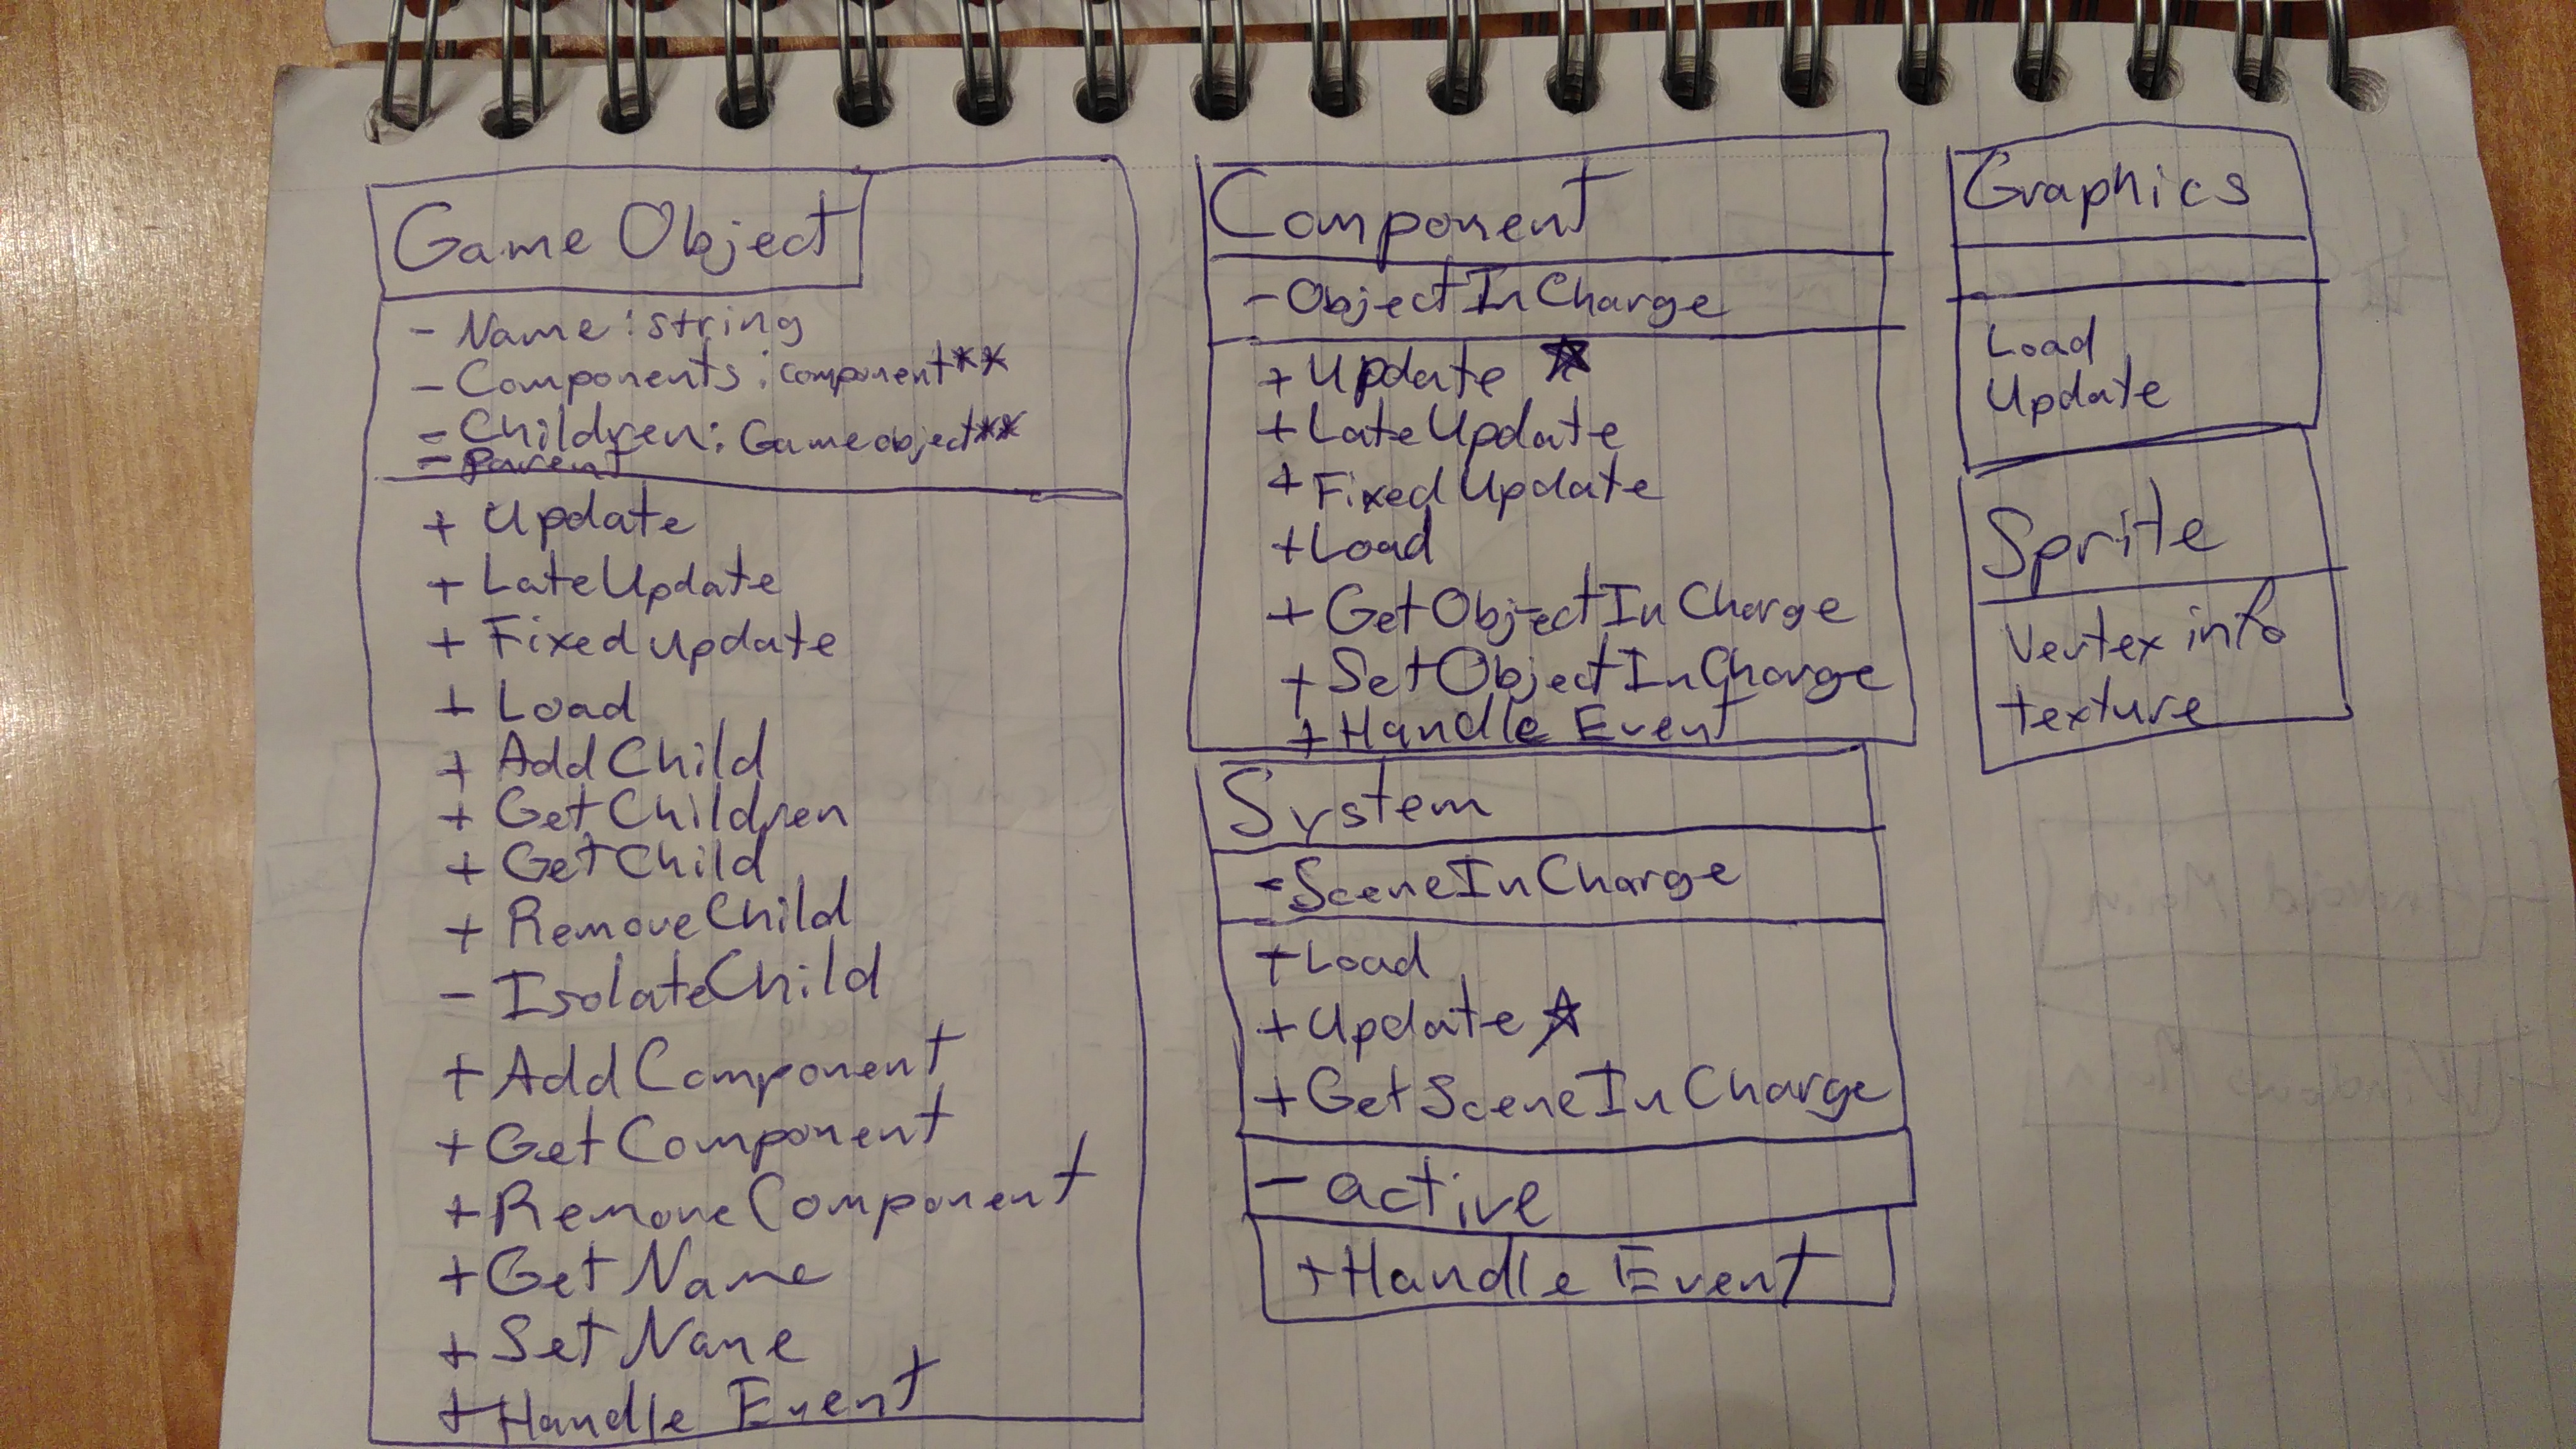 Game Object
- Name: string
- Components: component**
- Children: Gameobject**
- Parent
+ Update
+ LateUpdate
+ Fixed update
+ Load
+ Add Child
+ Get Children
+ Get Child
+ Remove Child
- IsolateChild
+ Add Component
+ Get Component
+ Remove Component
+ Get Name
+ Set Name
+ Handle Event
Component
- ObjectInCharge
+ Update ☆
+ LateUpdate
+ Fixed Update
+ Load
+ GetObjectInCharge
+ SetObjectInCharge
+ Handle Event
System
- SceneInCharge
+ Load
+ Update ☆
+ GetSceneInCharge
- active
+ Handle Event
Graphics
Load
Update
Sprite
Vertex info
texture